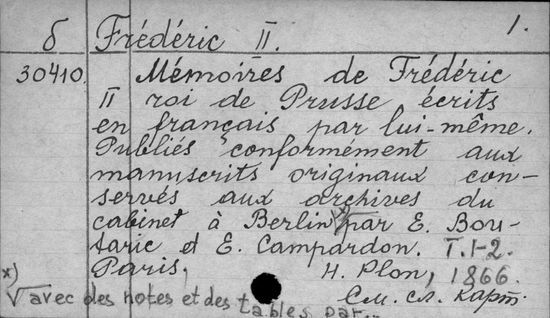 б Frédéric II. 1.
30410. Mémoires de Frédéric
II roi de Prusse écrits
en français par lui-même.
Publiés conformément aux
manuscrits originaux con-
servés aux archives du
cabinet à Berlin x) par E. Bou-
taric et E. Campardon. T. 1-2.
Paris, H. Plon, 1866.
x) √ avec des notes et des tables par...
См. сл. карт.